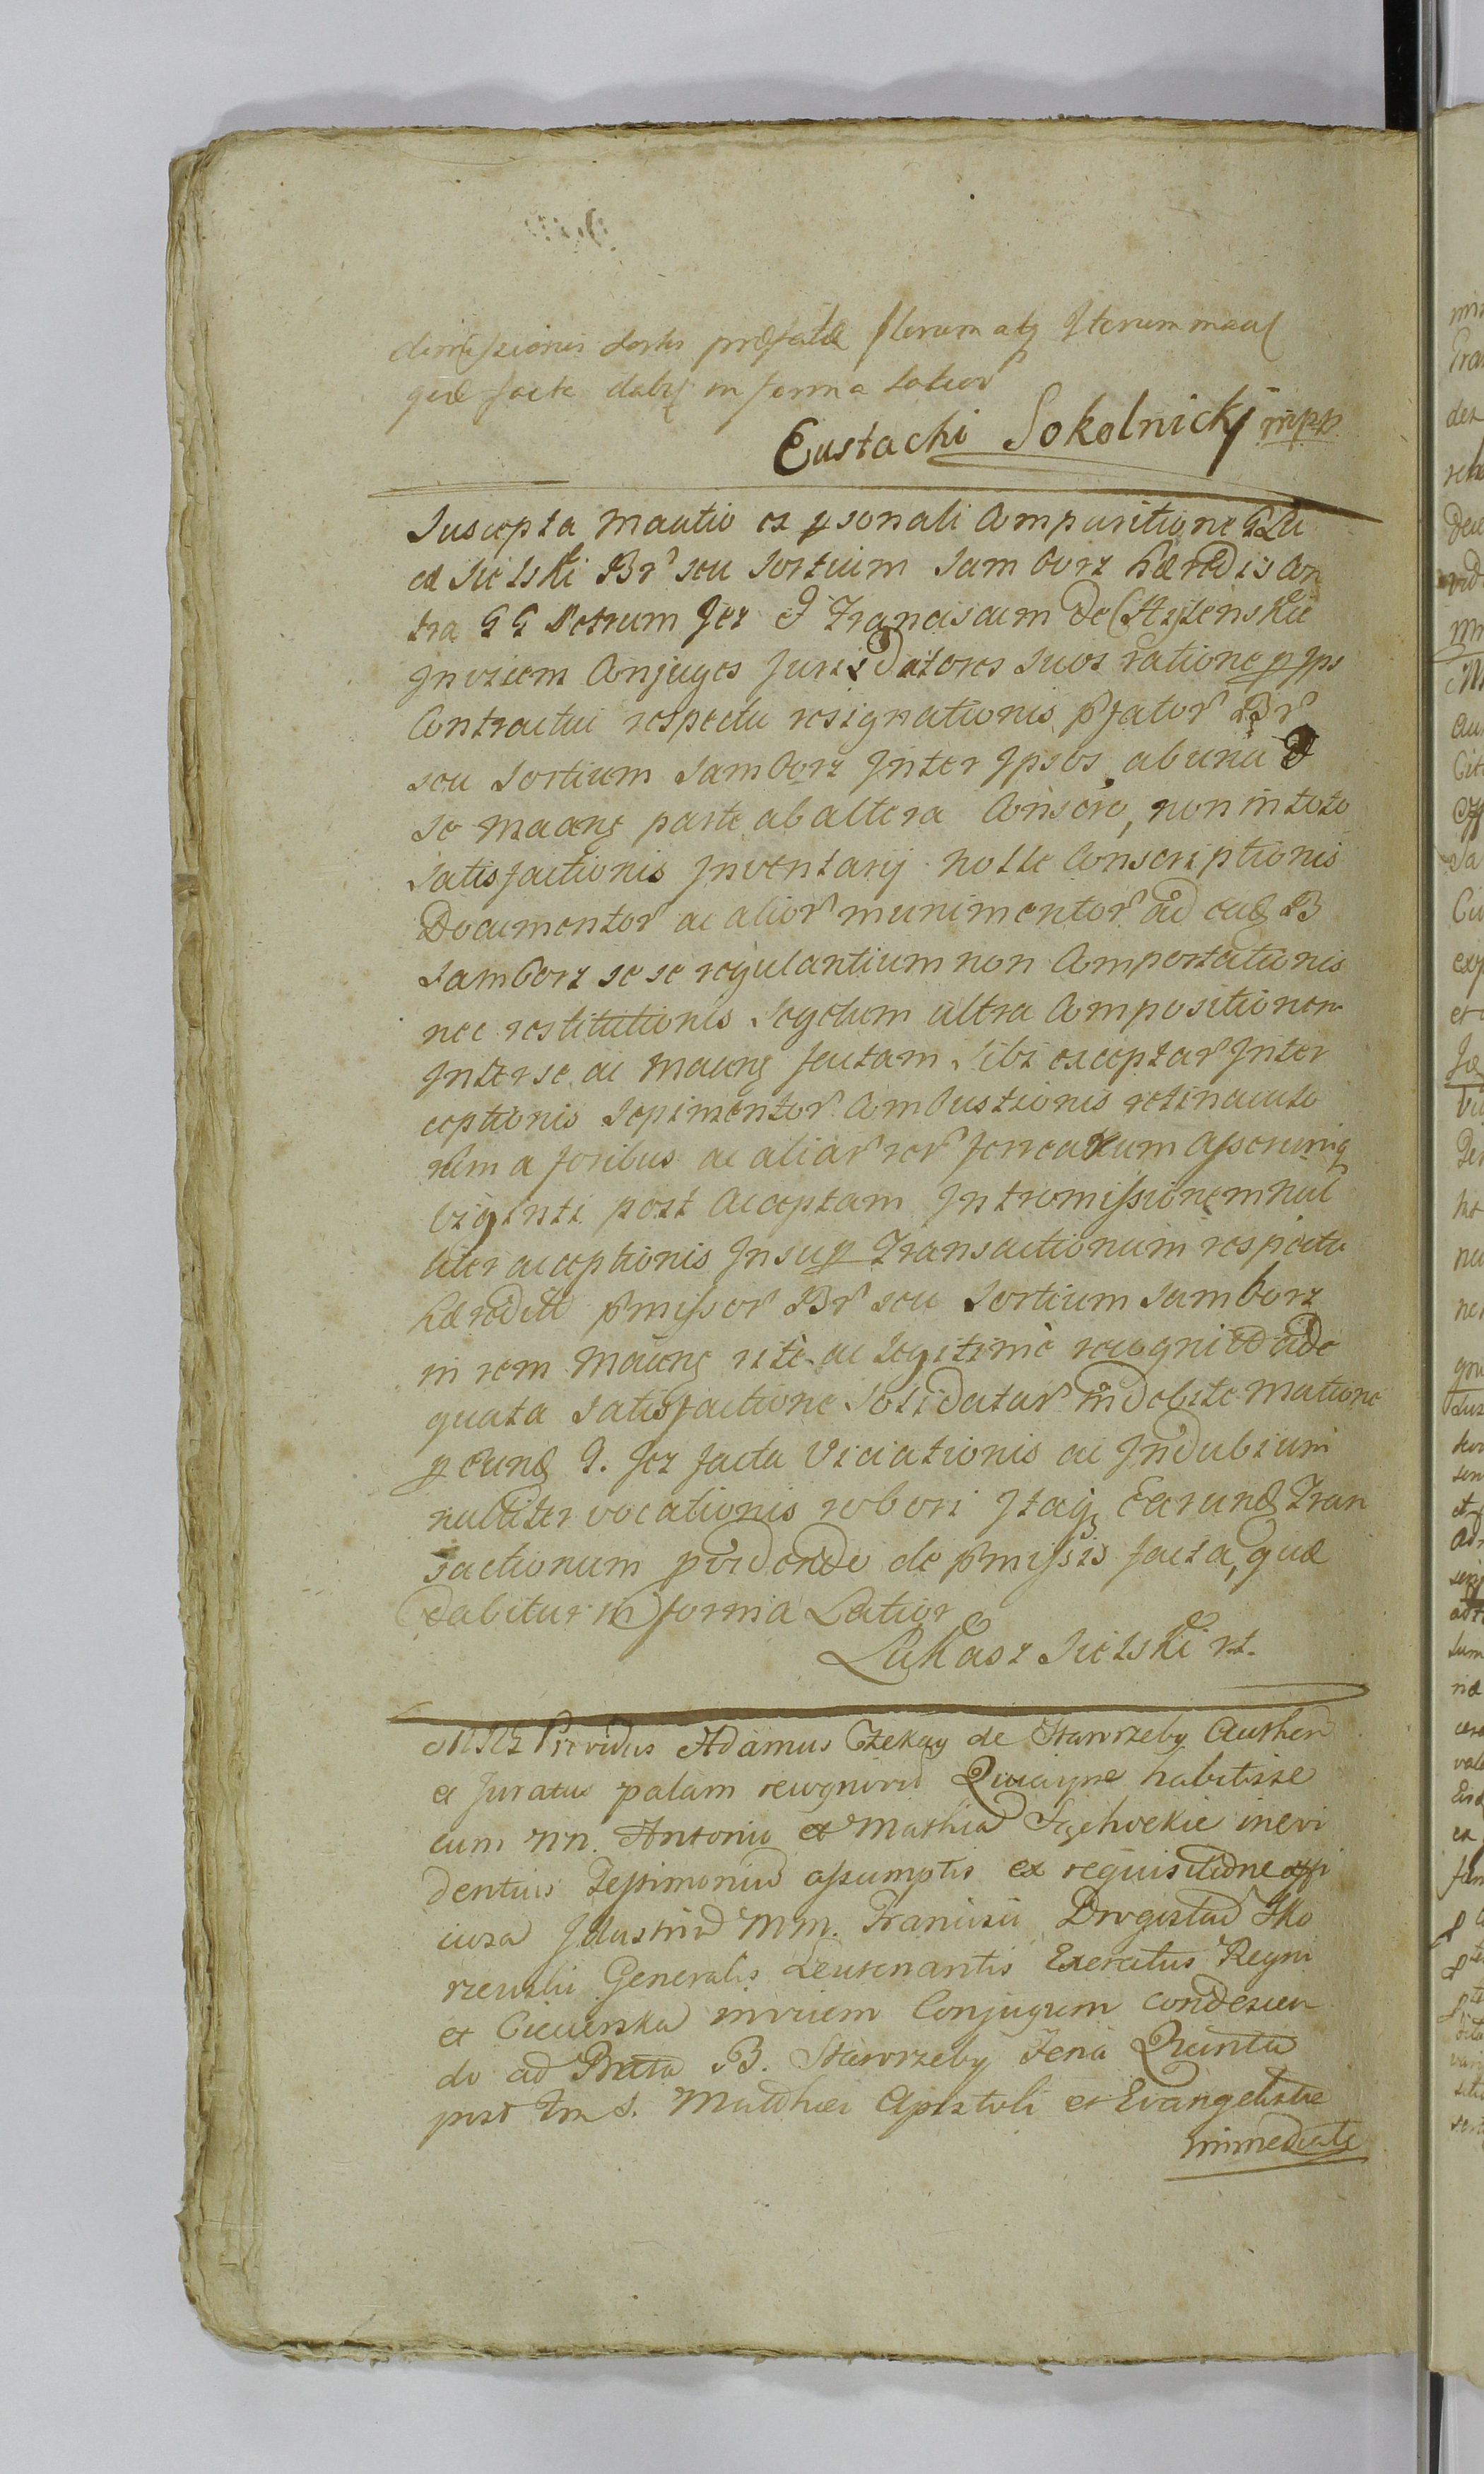 dimissionis sortis præfatæ Iterum atq Iterum
quæ facta dabit in forma latior
Eustachi Sokolnicki mpp
Suscepta Man͞tio ex psonali Comparitione G Lu
cæ Sielski Br seu Sortium Samborz Hæredis Con
tra GG Petrum Jez et Franciscam de
Invicem Conjuges Juris Datores Suos ratione p Ips
Contractui respectu resignationis pfator Br
seu Sortium Samborz Inter Ipsos ab una et
se Man͞ng parte ab altera Conscro, non in toto
Satisfactionis Inventarij nolle Conscriptionis
Documentor ac alior munimentor ad ead B
Samborz se se regulantium non Comportationis
nec restitutionis Segetum ultra Compositionem
Inter se ac Man͞ng factam Sibi exceptar Inter
ceptionis Sepimentor Combustionis retinaculo
rum a foribus ac aliar rer ferrearum Asserumq
Viginti post Acceptam Intromissionem nul
liter acceptionis Insup Transactionum respectu
hæredit pmissor Br seu Sortium Samborz
in rem Man͞ng rite ac legitime recognit ade
quata Satisfactione Solidatar indebite Matione
p eund G. Jez facta Viciationis ac Indubium
nulliter vocationis robori Itaq Earund Tran
sactionum pvidendo de pmissis facta, quæ
dabitur in forma Latior
Lukasz Sielski mp.
Providus Adamus de Stawrzeby Authen
et Juratus palam recognovit Quia ipse habitis se
cum nn. Antonio et Mathia inevi
dentius Testimonium assumptis ex requisitione offi
ciosa Illustriu MM. Francisci Drogislai Sko
rzewski Generalis Leutenantis Exercitus Regni
et Ciecierska invicem Conjugum condescen
do ad Bona B. Stawrzeby Feria Quinta
post Fm S. Matthæi Apostoli et Evangelistæ
immediate